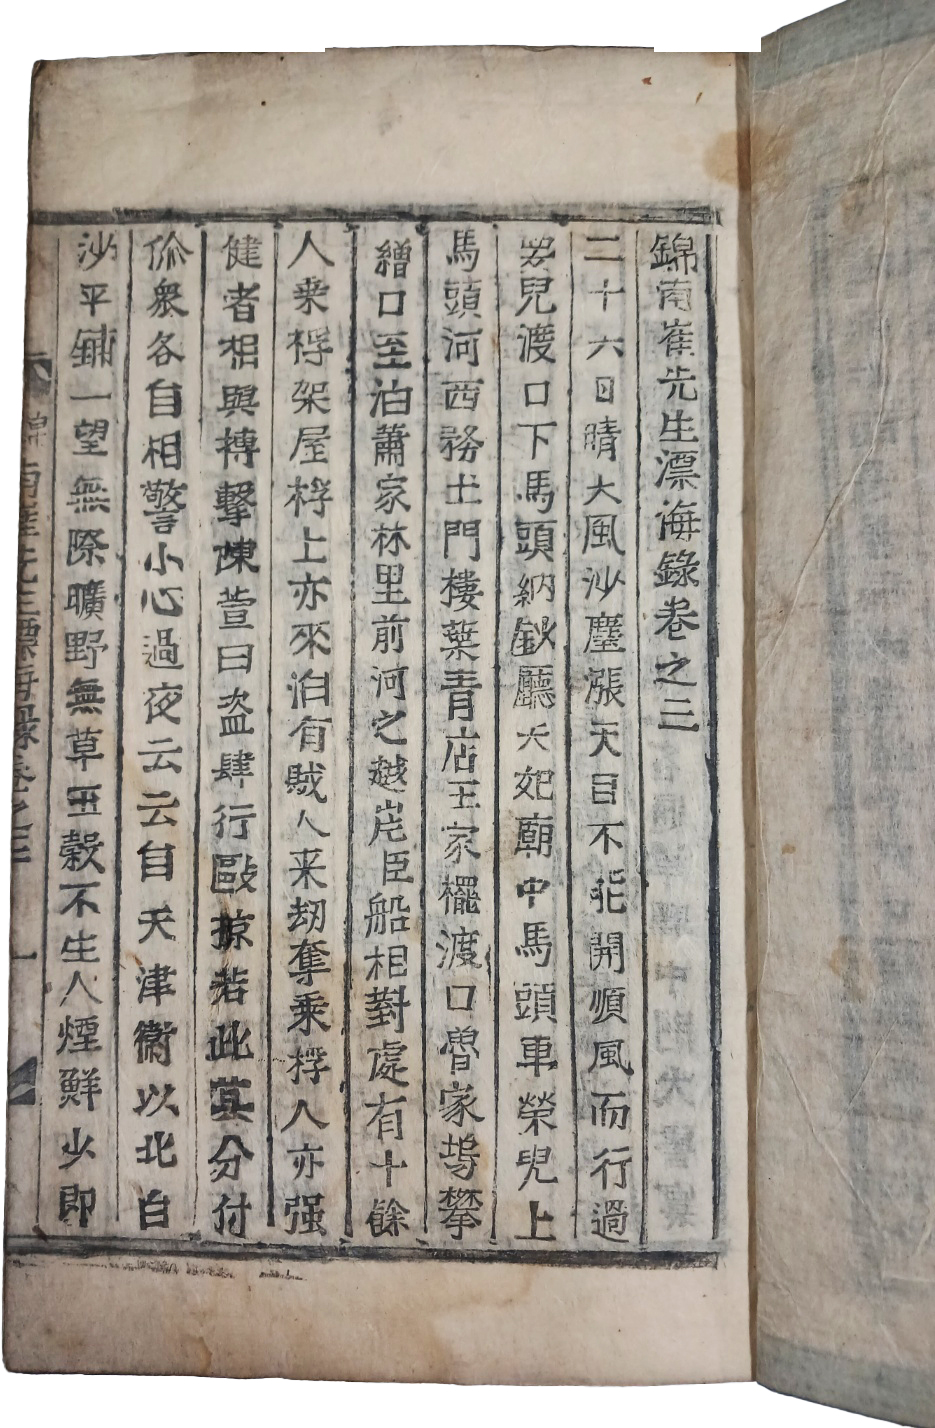 錦南崔先生漂海錄卷之三
二十六日晴大風沙塵漲天目不能開順風而行過
兒渡口下馬頭納鈔廳大妃廟中馬頭車榮兒上
馬頭河西務土門樓葉青店王家擺渡口魯家塢攀
繒口至泊蕭家林里前河之越岸臣船相對處有十餘
人乘桴架屋桴上亦來泊有賊人来劫奪乘桴人亦强
健者相與搏擊陳萱曰盗肆行毆掠若此其分付
你衆各自相警小心過夜云云自天津衛以北白
沙平鋪一望無際曠野無草五穀不生人煙鮮少即
錦南崔先生漂海錄卷之三 一